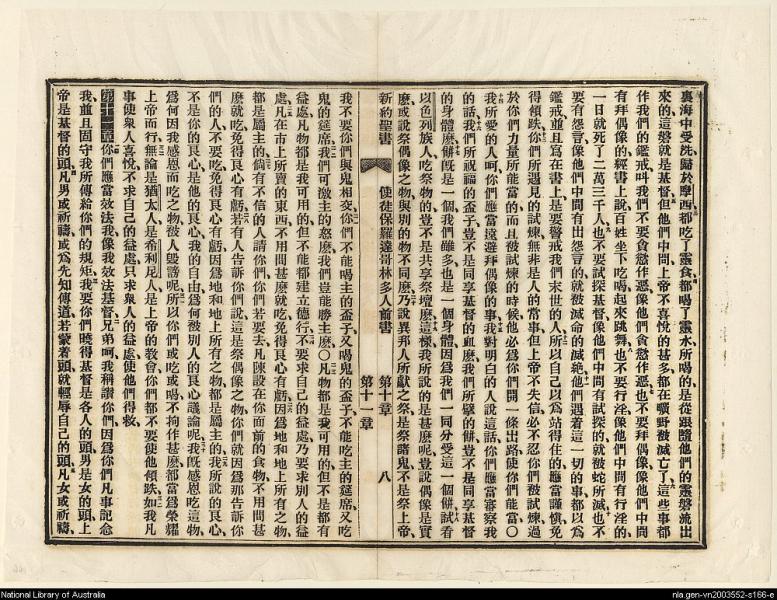 裏海中受洗歸於摩西都吃了靈食都喝了靈水所喝的是從跟隨他們的靈磐流出
來的這磐就是基督但他們中間上帝不喜悅的甚多都在曠野被滅亡了這些事都
作我們的鑑戒叫我們不要貪慾作惡像他們貪慾作惡也不要拜偶像像他們中間
有拜偶像的經書上說百姓坐下吃喝起來跳舞也不要行淫像他們中間有行淫的
一日就死了二萬三千人也不要試探基督像他們中間有試探的就被蛇所滅也不
要有怨言像他們中間有出怨言的就被滅命的滅絕他們遇着這一切的事都以爲
鑑戒並且寫在書上是要警戒我們末世的人所以自己以爲站得住的應當謹愼免
得傾跌你們所遇見的試煉無非是人的常事但上帝不失信必不忍你們被試煉過
於你們力量所能當的而且被試煉的時候他必爲你們開一條出路使你們能當〇
我所愛的人呵你們應當遠避拜偶像的事我對明白的人說這話你們應當審察我
的話我們所祝福的盃子豈不是同享基督的血麽我們所擘的餅豈不是同享基督
的身體麽餅旣是一個我們雖多也是一個身體因爲我們一同分受這一個餅試看
以色列族人吃祭物的豈不是共享祭壇麽這樣我所說的是甚麽呢豈說偶像是實
麽或說祭偶像之物與別的物不同麽乃說異邦人所獻之祭是祭諸鬼不是祭上帝
新約聖書 使徒保羅達哥林多人前書 第十章 第十一章 八
我不要你們與鬼相交你們不能喝主的盃子又喝鬼的盃子不能吃主的筵席又吃
鬼的筵席我們可激主的怒麽我們豈能勝主麽〇凡物都是我可用的但不是都有
益處凡物都是我可用的但不能都建立德行不要求自己的益處乃要求別人的益
處凡在市上所賣的東西不用問甚麽就吃免得良心有虧因爲地和地上所有之物
都是屬主的倘有不信的人請你們你們若要去凡陳設在你面前的食物不用問甚
麽就吃免得良心有虧若有人告訴你們說這是祭偶像之物你們就因爲那告訴你
們的人不要吃免得良心有虧因爲地和地上所有之物都是屬主的我所說的良心
不是你的良心是他的良心我的自由爲何被別人的良心議論呢我旣感恩吃這物
爲何因我感恩而吃之物被人毀謗呢所以你們或吃或喝不拘作甚麽都當爲榮耀
上帝而行無論是猶太人是希利尼人是上帝的教會你們都不要使他傾跌如我凡
事使衆人喜悅不求自己的益處只求衆人的益處使他們得救
第十一章你們應當效法我像我效法基督兄弟呵我稱讚你們因爲你們凡事記念
我並且固守我所傳給你們的規矩我要你們曉得基督是各人的頭男是女的頭上
帝是基督的頭凡男或祈禱或爲先知傳道若蒙着頭就輕辱自己的頭凡女或祈禱
National Library of Australia
nla.gen-vn2003552-s166-e